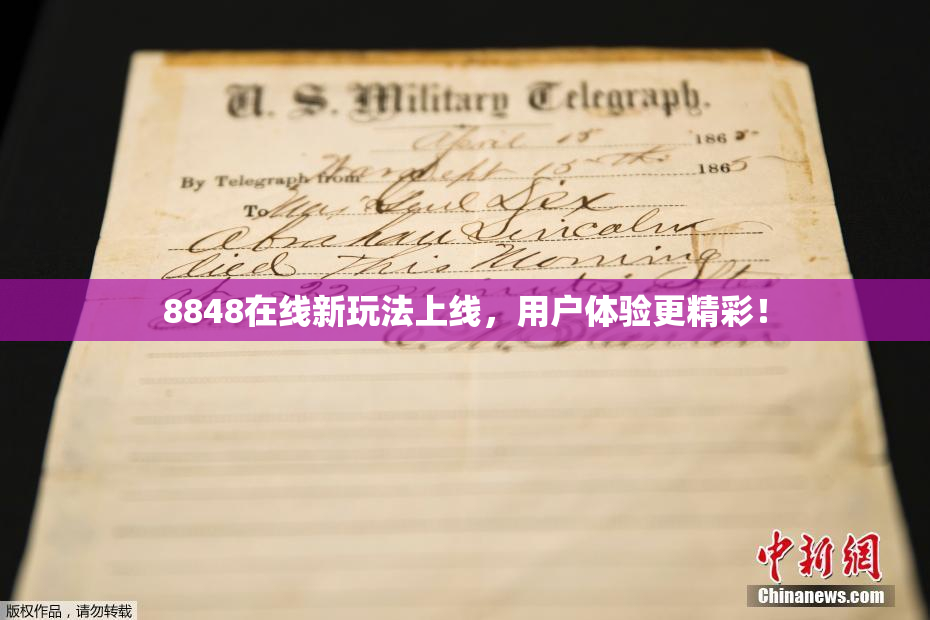 U. S. Military Telegraph.
April 15 1865
By Telegraph from War Dept 15th 1865
To Maj Genl Dix
Abraham Lincoln
died This Morning
at 22 minutes after
8848在线新玩法上线，用户体验更精彩！
E. M. Stanton
中新网
Chinanews.com
版权作品，请勿转载